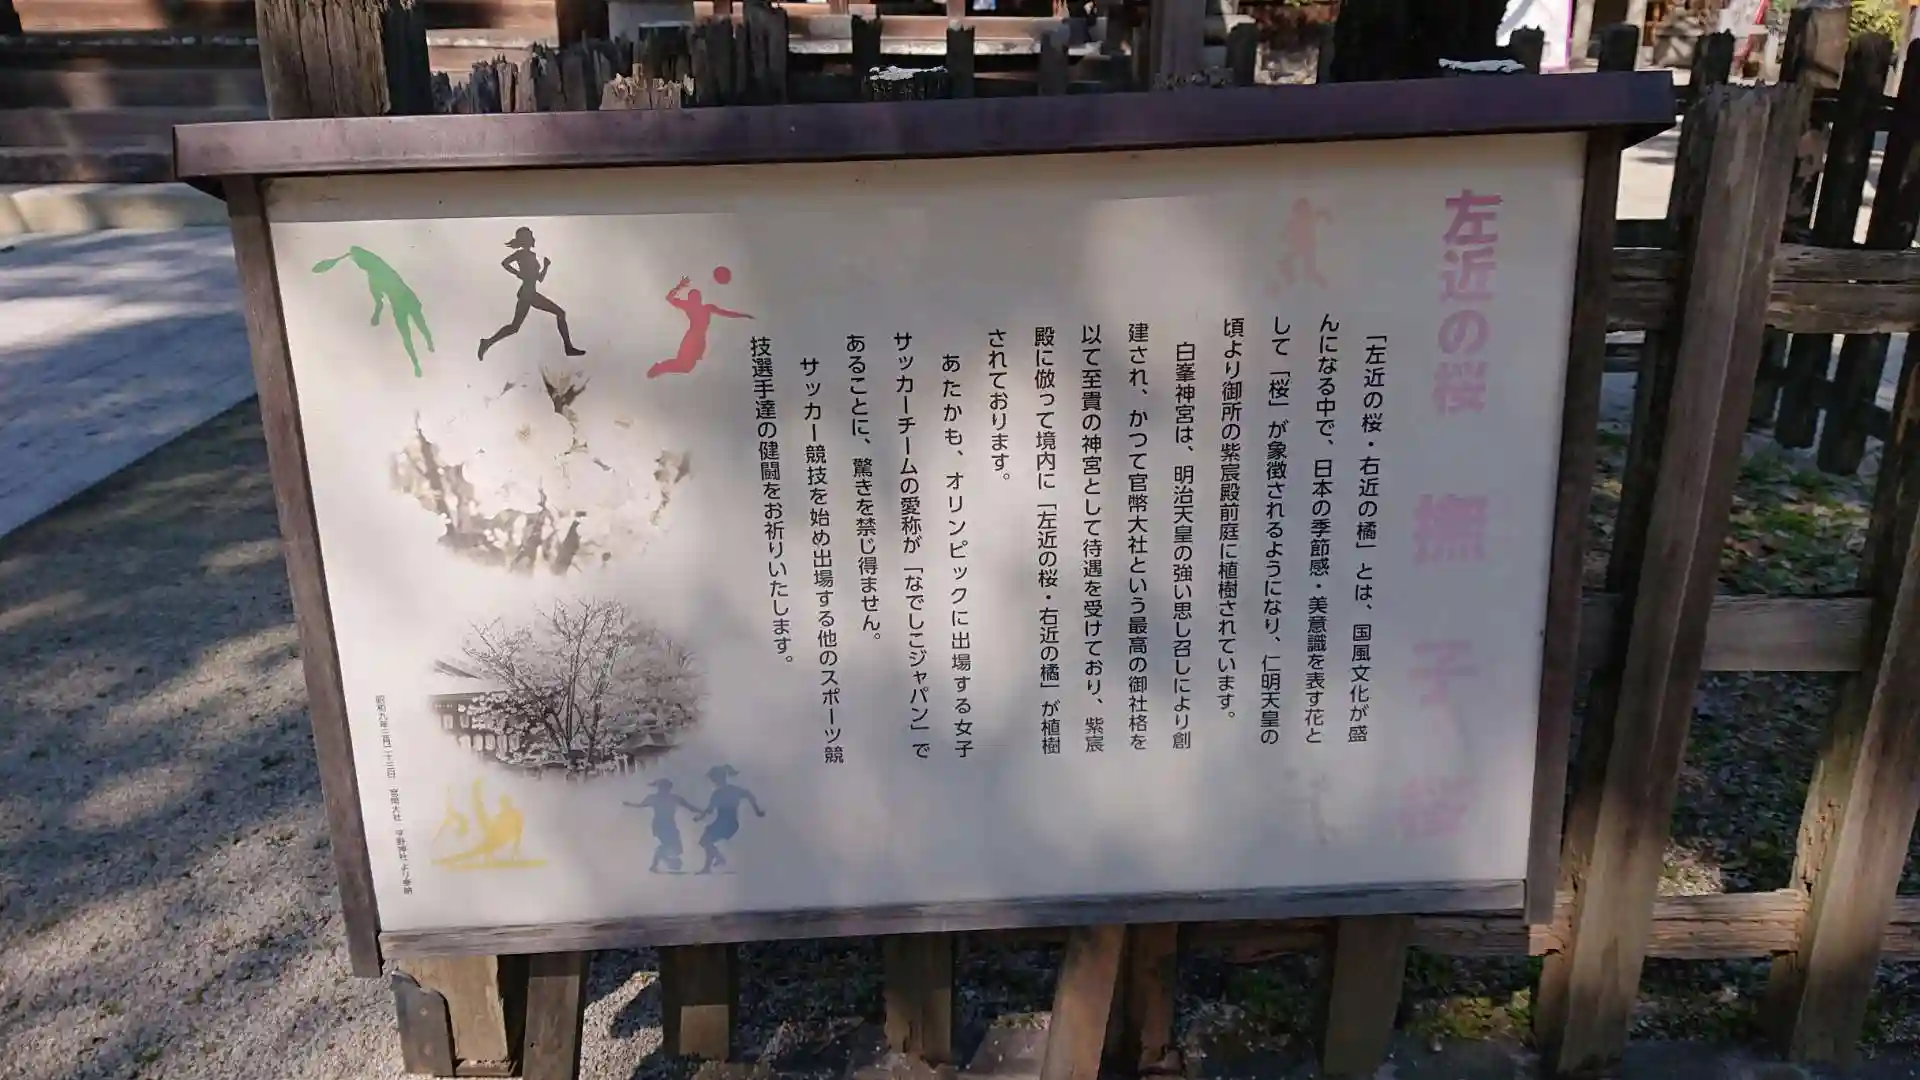 左近の桜 撫子桜
「左近の桜・右近の橘」とは、国風文化が盛
んになる中で、日本の季節感・美意識を表す花と
して「桜」が象徴されるようになり、仁明天皇の
頃より御所の紫宸殿前庭に植樹されています。
白峯神宮は、明治天皇の強い思し召しにより創
建され、かつて官幣大社という最高の御社格を
以て至貴の神宮として待遇を受けており、紫宸
殿に倣って境内に「左近の桜・右近の橘」が植樹
されております。
あたかも、オリンピックに出場する女子
サッカーチームの愛称が「なでしこジャパン」で
あることに、驚きを禁じ得ません。
サッカー競技を始め出場する他のスポーツ競
技選手達の健闘をお祈りいたします。
昭和九年三月二十三日 官幣大社 平野神社より奉納